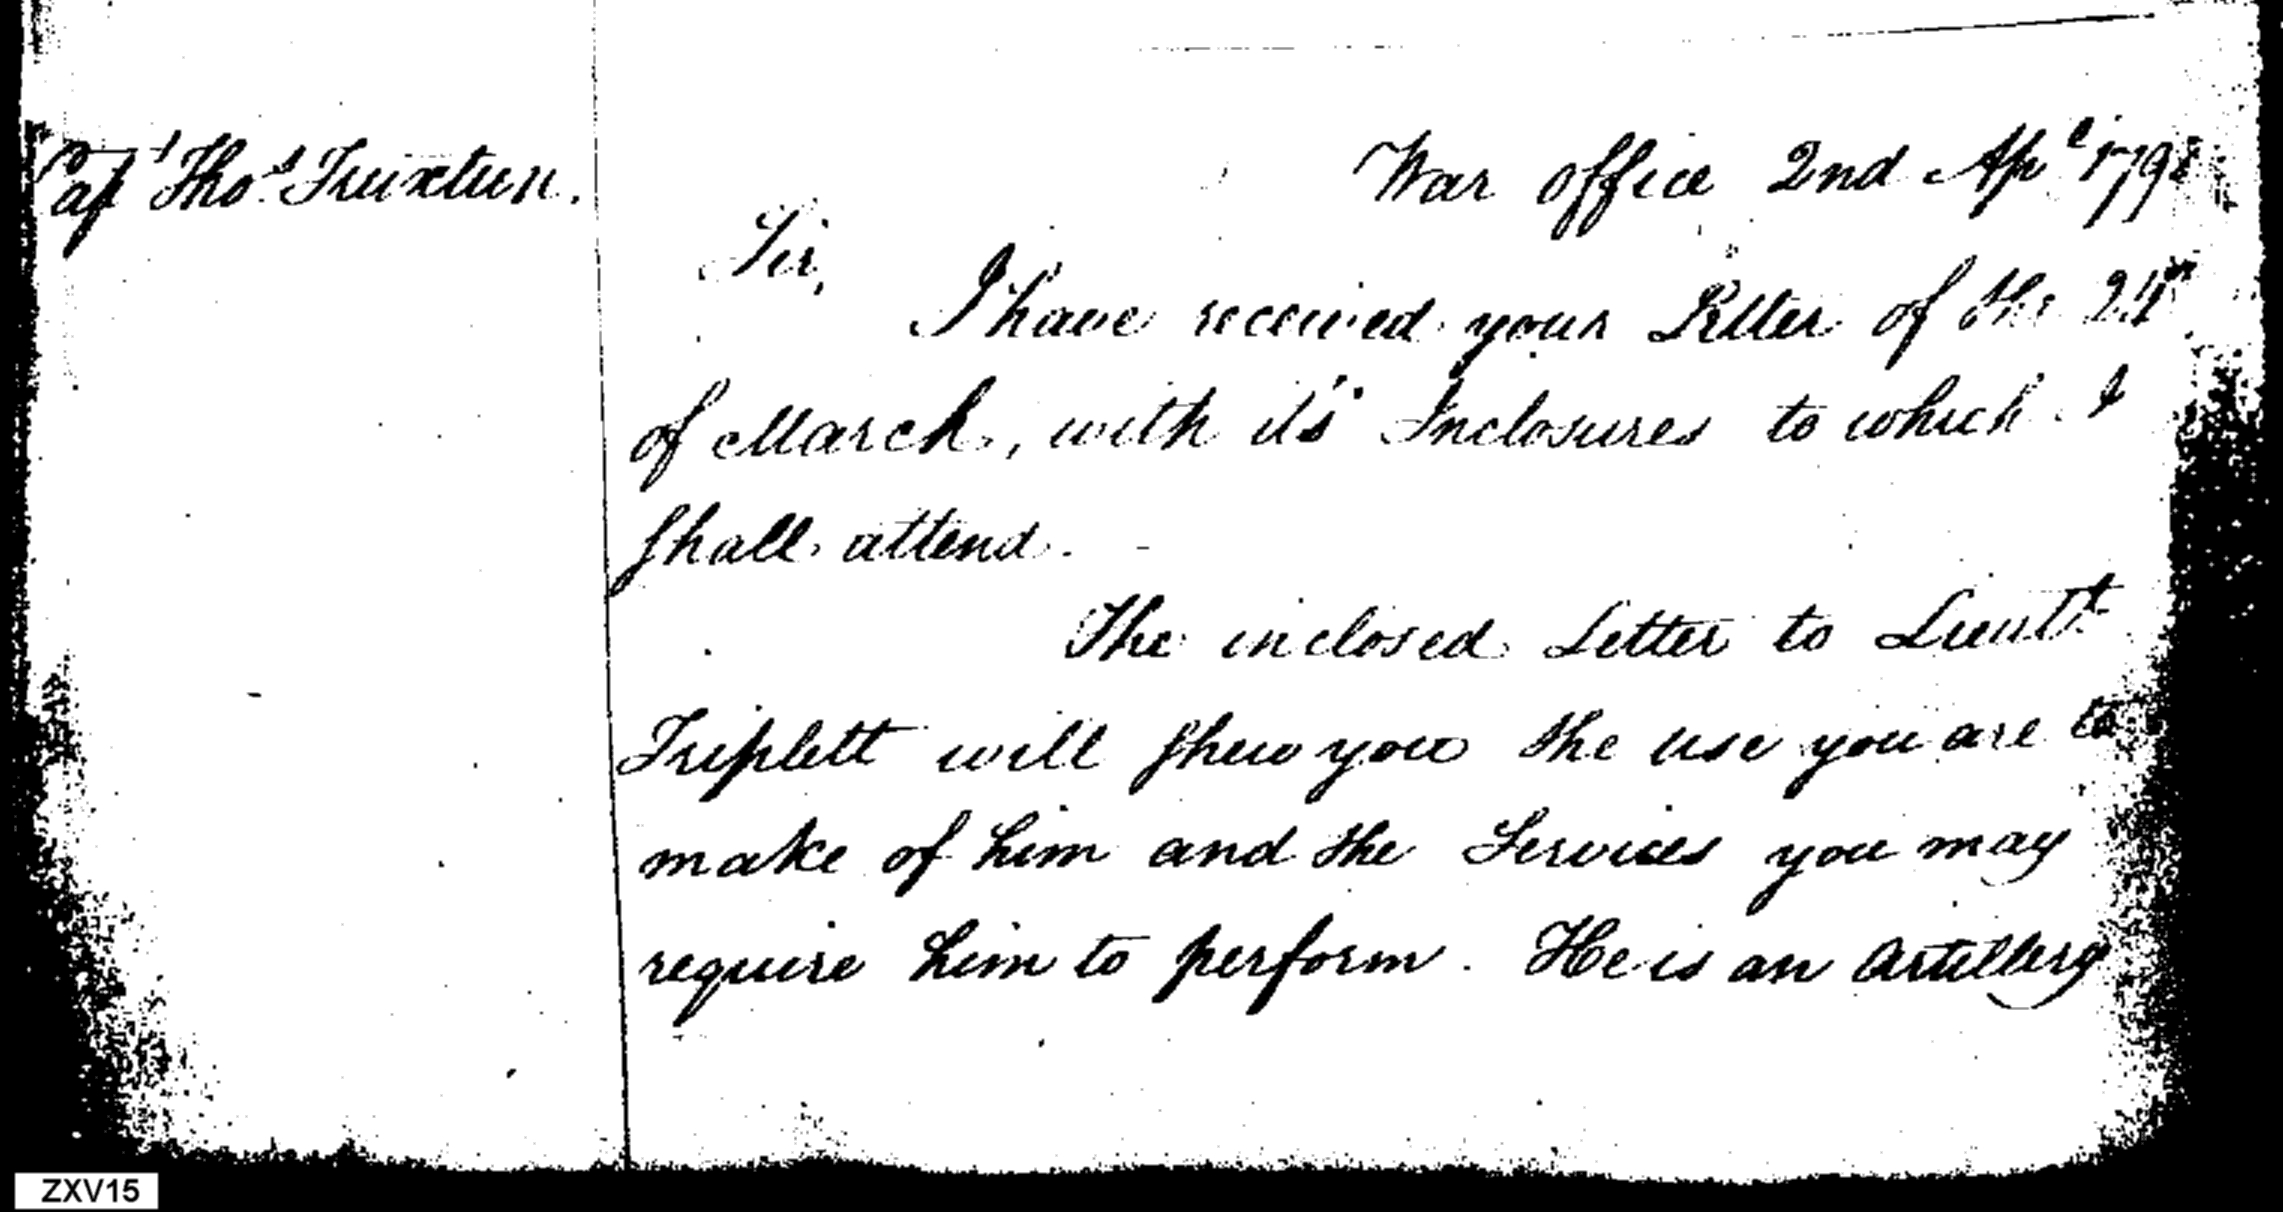 Capt Thos Truxtun.
War office 2nd Apl 1798
Sir,
I have received your Letter of the 24th
of March, with it's Inclosures to which I
shall attend. -
The inclosed Letter to Lieutt
Triplett will shew you the use you are to
make of him and the Services you may
require him to perform. He is an Artillery
ZXV15